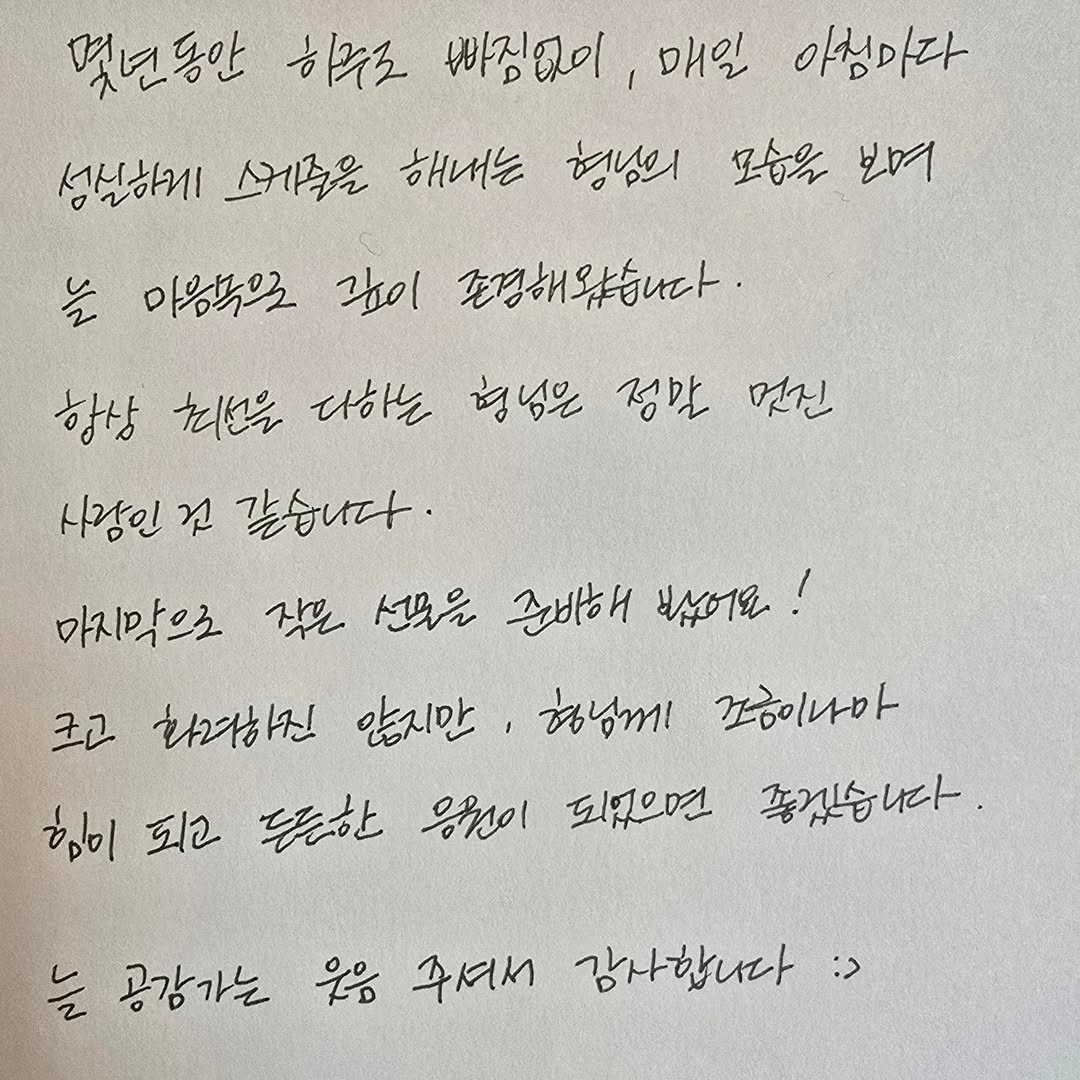 몇년동안 하루도 빠짐없이, 매일 아침마다
성실하게 스케줄을 해내는 형님의 모습을 보며
늘 마음속으로 깊이 존경해왔습니다.
항상 최선을 다하는 형님은 정말 멋진
사람인 것 같습니다.
마지막으로 작은 선물을 준비해 봤어요!
크고 화려하진 않지만, 형님께 조금이나마
힘이 되고 든든한 응원이 되었으면 좋겠습니다.
늘 공감가는 웃음 주셔서 감사합니다 :>